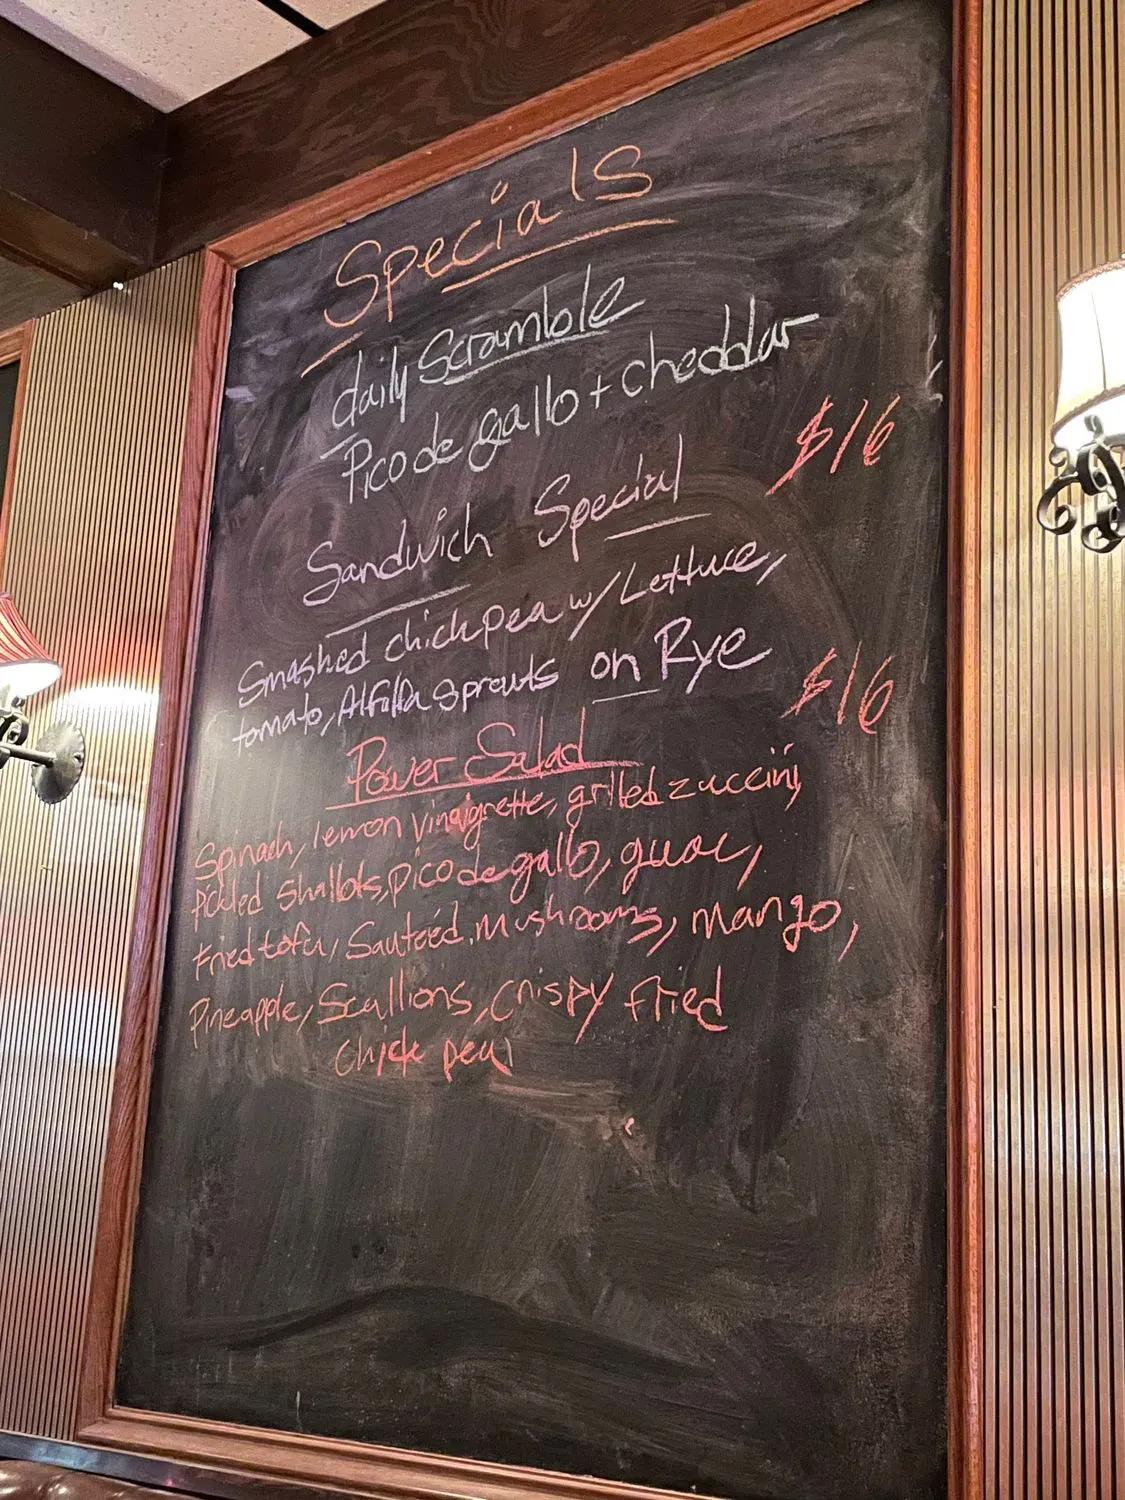 Specials
daily Scramble
Pico de gallo + cheddar
$16
Sandwich Special
Smashed chickpea w/ Lettuce,
tomato, Alfalfa sprouts on Rye
$16
Power Salad
Spinach, lemon vinaigrette, grilled zuccini,
Pickled Shallots, pico de gallo, guac,
Fried tofu, Sauteéd mushrooms, Mango,
Pineapple, Scallions, crispy fried
chick pea